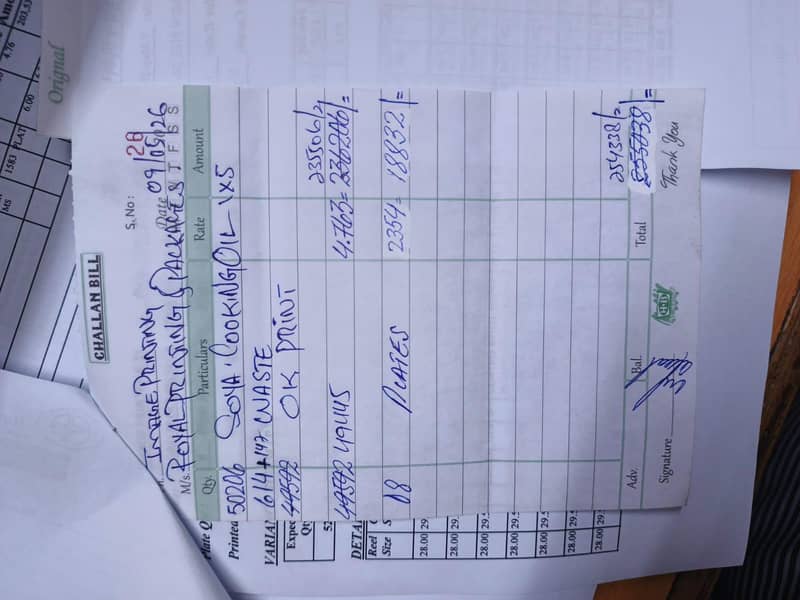 Orignal
CHALLAN BILL
S. No: 28
IMAGE PRINTING
Date 09/05/26
M/s. ROYAL PRINTING & PACKAGES
Qty. Particulars Rate Amount
50206 SOYA COOKING OIL 1x5
614+147 WASTE
49592 OK PRINT
235506/=
49592 49445 4.763= 236206/=
08 PLATES 2354= 18832/=
254338/=
Adv. Bal. Total 255038/=
Signature Thank You
Printed
VARIA
Expec
Qt
52
DETA
Reel
Size S
28.00 29.
28.00 29.
28.00 29.
28.00 29.
28.00 29.
28.00 29.
28.00 29.
28.00 29.
MS
1583 PLAT 6.00
4.76 203.53